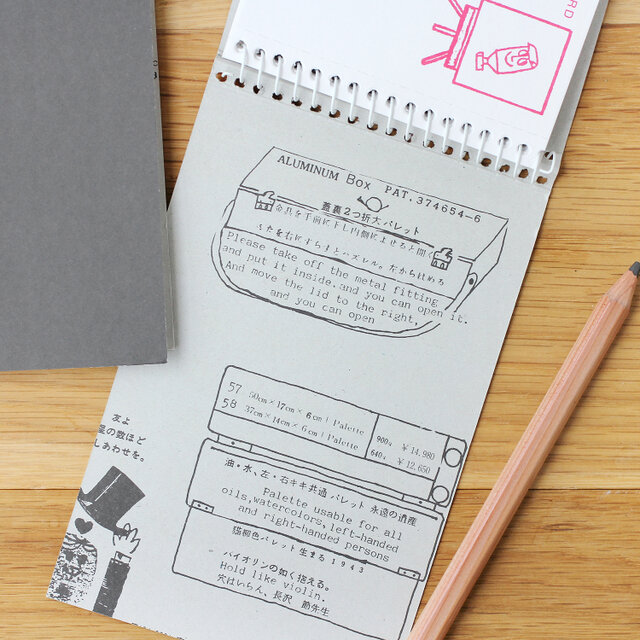 ARD
ALUMINUM Box PAT.374654-6
蓋裏2つ折大パレット
金具を手前に下し内側によせると開く
ふたを右にずらすとハズレル。だからはめる
Please take off the metal fitting
and put it inside.and you can open it.
And move the lid to the right,
and you can open
57 50cm×17cm×6cm 1 Palette 900g ¥14,980
58 37cm×14cm×6cm 1 Palette 640g ¥12,650
油・水、左・右キキ共通 パレット 永遠の遺産
Palette usable for all
oils,watercolors,left-handed
and right-handed persons
猫柳色パレット 生まる 1943
バイオリンの如く抱える。
Hold like violin.
穴はいらん、長沢 節先生
友よ
星の数ほど
しあわせを。